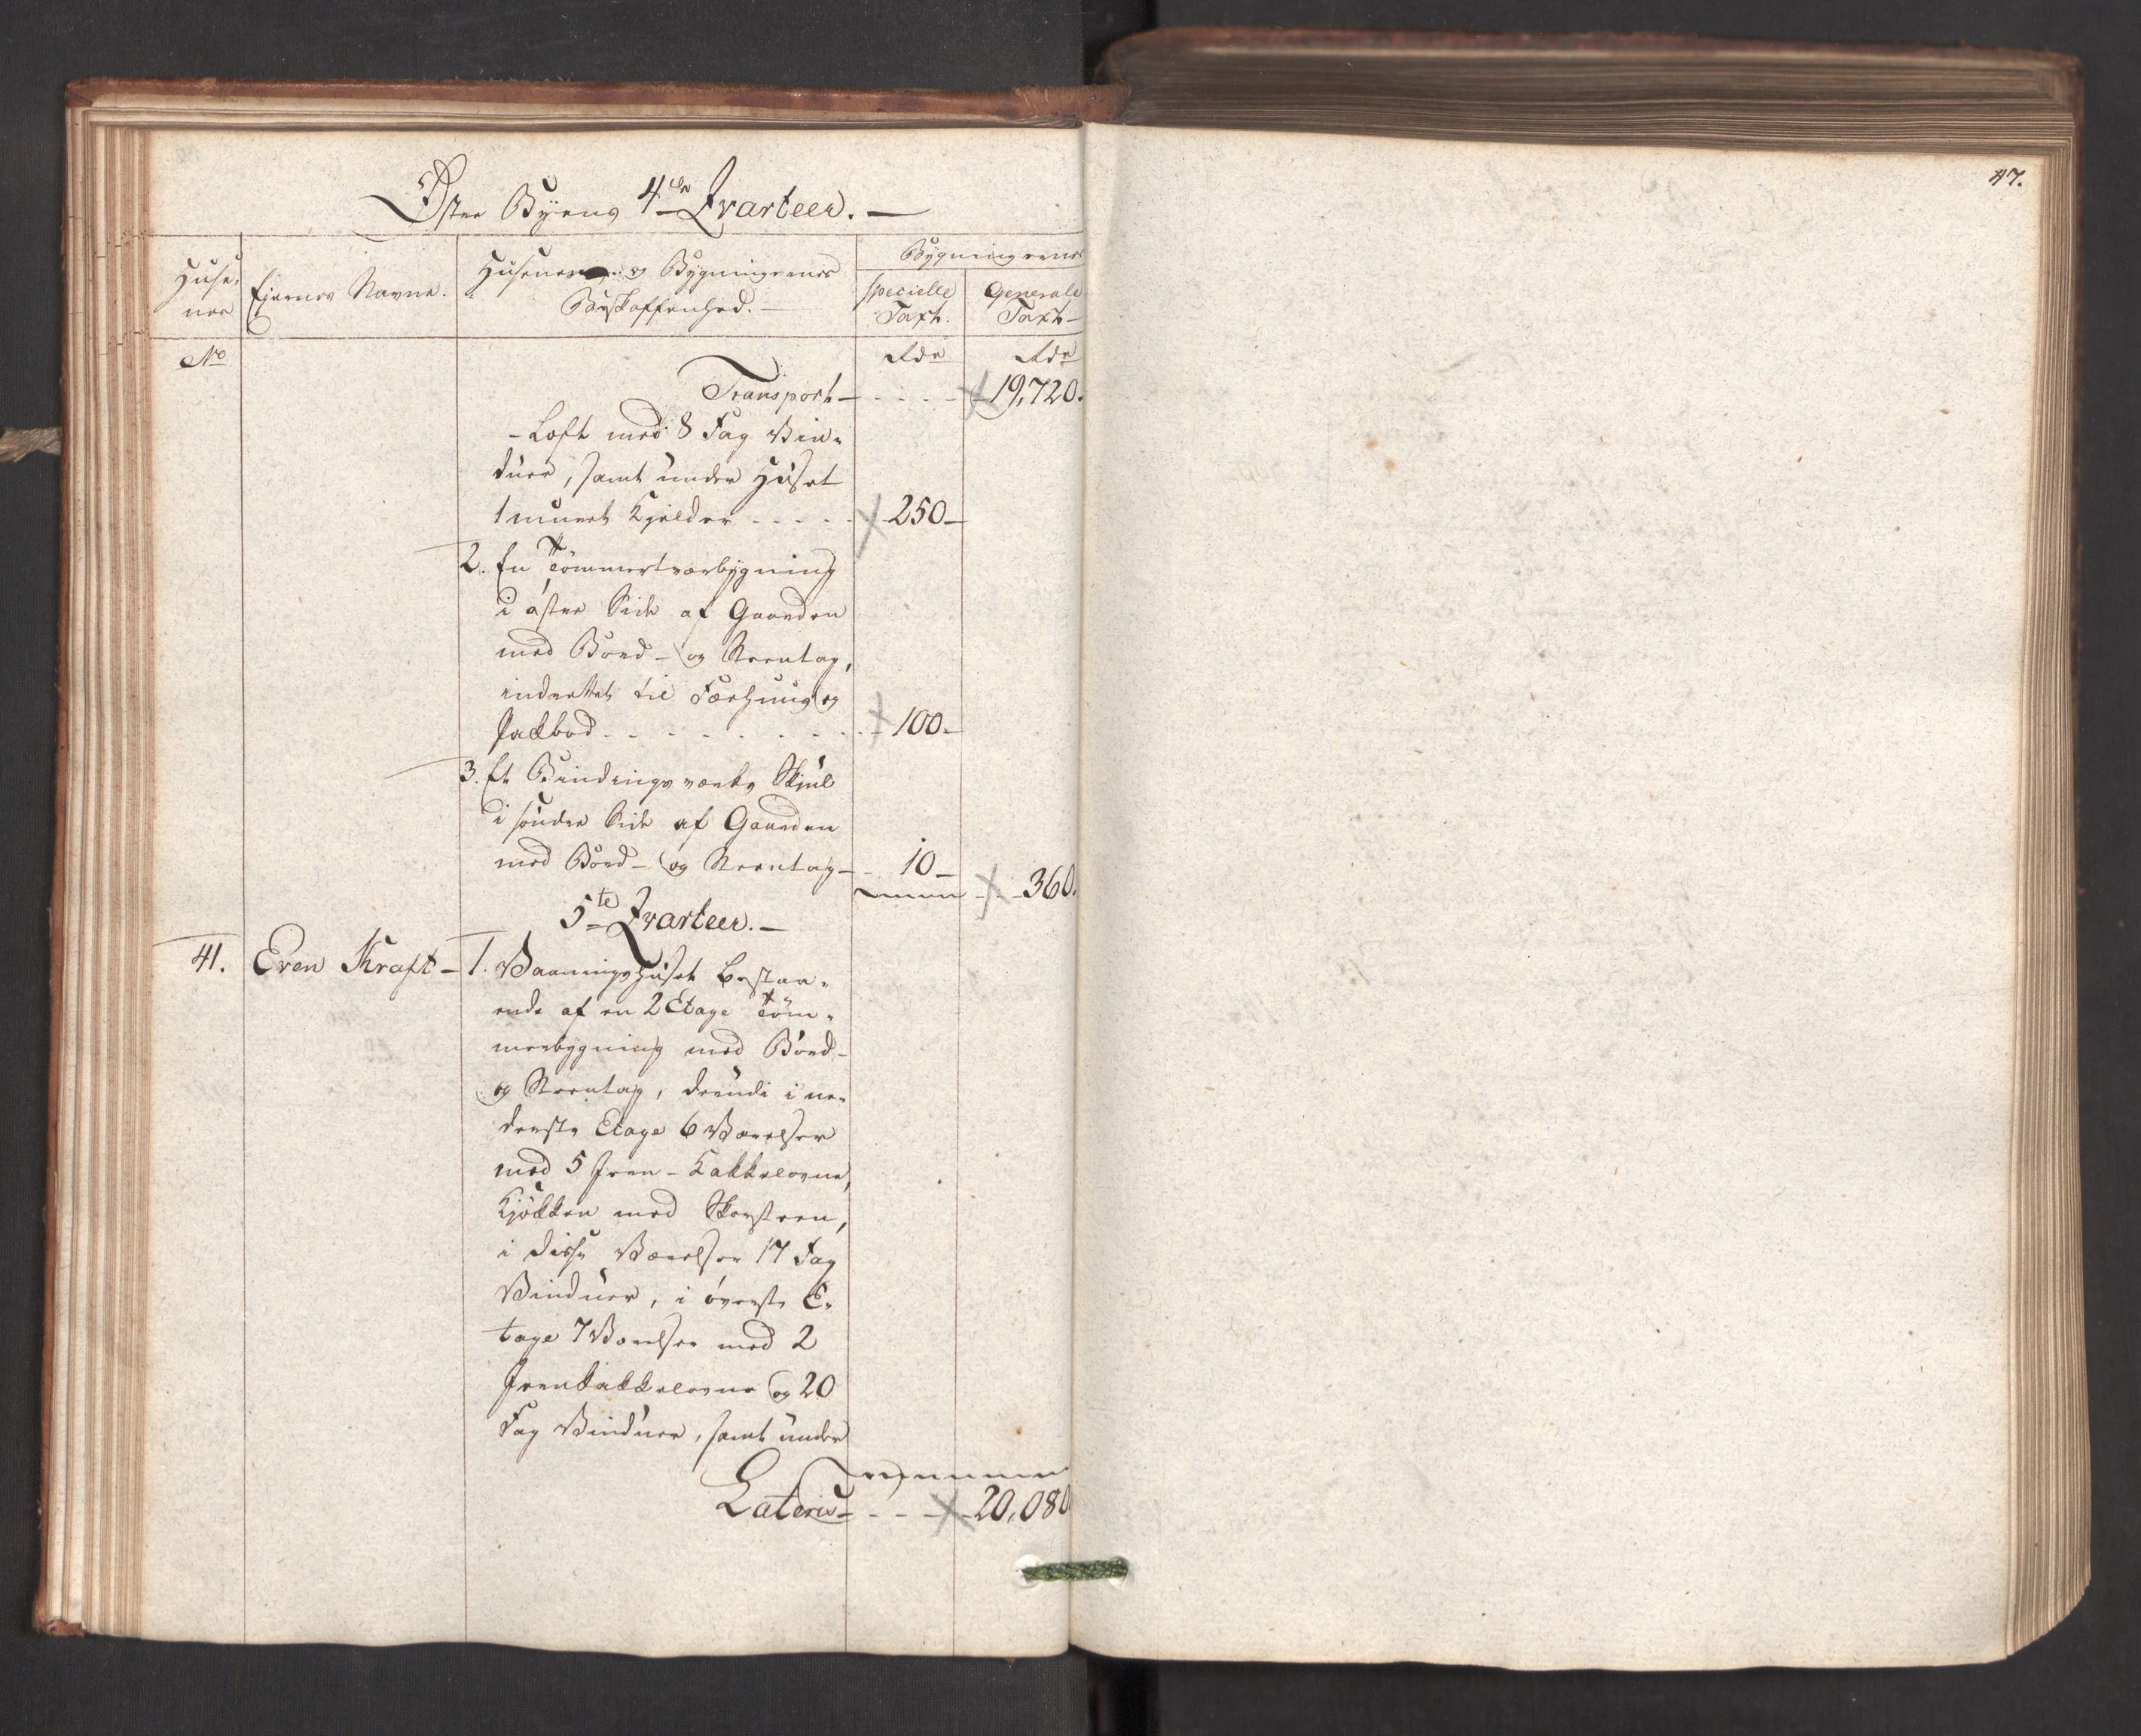 Øster Byens 4de Qvarteer.
Huse-
nes
Ejernes Navne.
Husenes og Bygningernes
Beskaffenhed.
Bygningernes
specielle
Taxt.
Generale
Taxt
No
Rdr
Rdr
Transport - - - - 19,720.
- Loft med 8 Fag Vin-
duer, samt under Huset
1 muret Kjelder - - - - 250
2. En Tömmertværbygning
i öster Side af Gaarden
med Bord- og Steentag,
indrettet til Færhuus og
Pakbod - - - - 100.
3. Et Bindingsværks Skjul
i sönder Side af Gaarden
med Bord- og Steentag - 10 - 360.
5te Qvarteer.
41. Even Kraft - 1. Vaaningshuset bestaa-
ende af en 2 Etage Töm-
merbygning med Bord-
og Steentag, derudi i ne-
derste Etage 6 Værelser
med 5 Jern-Kakkelovne,
Kjökken med Skorsteen,
i disse Værelser 17 Fag
Vinduer, i överste E-
tage 7 Værelser med 2
Jernkakkelovne og 20
Fag Vinduer, samt under
Lateris - - - 20,080
47.